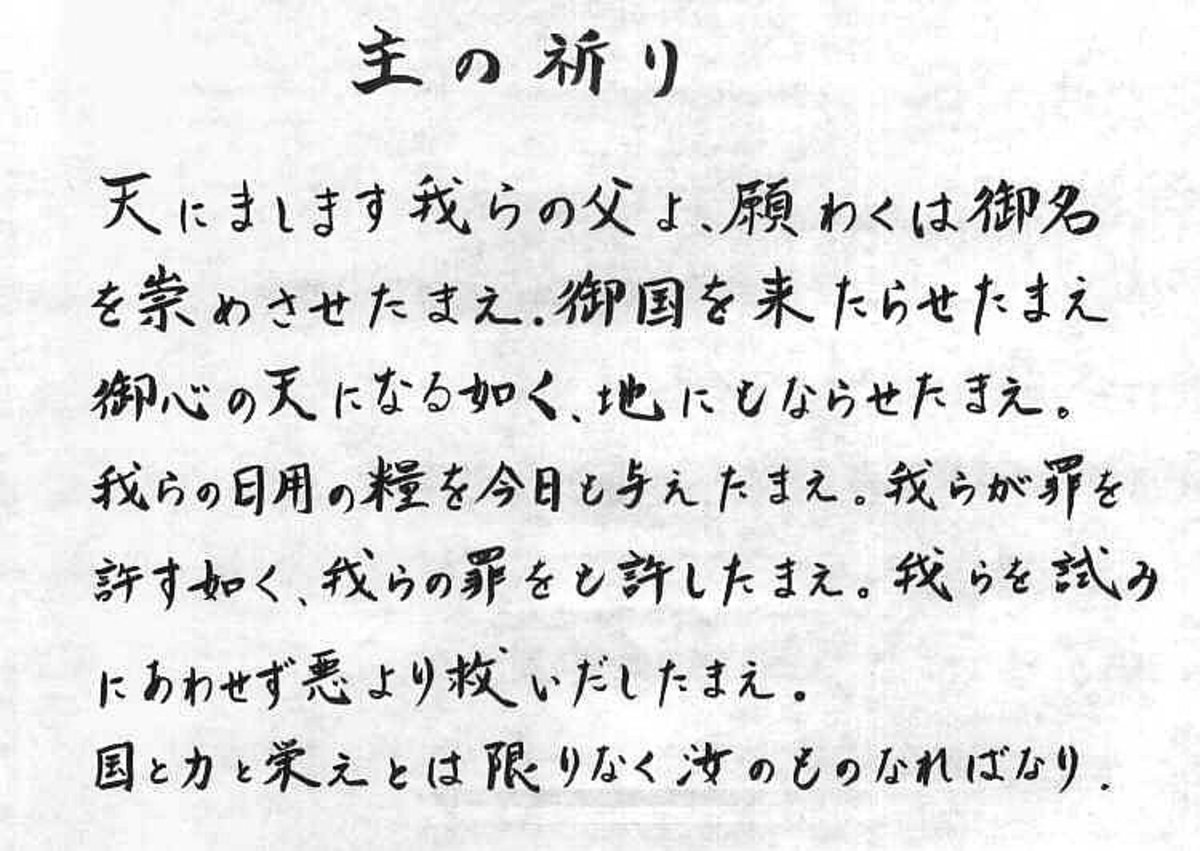 主の祈り
天にまします我らの父よ、願わくは御名
を崇めさせたまえ.御国を来たらせたまえ
御心の天になる如く、地にもならせたまえ。
我らの日用の糧を今日も与えたまえ。我らが罪を
許す如く、我らの罪をも許したまえ。我らを試み
にあわせず悪より救いだしたまえ。
国と力と栄えとは限りなく汝のものなればなり.